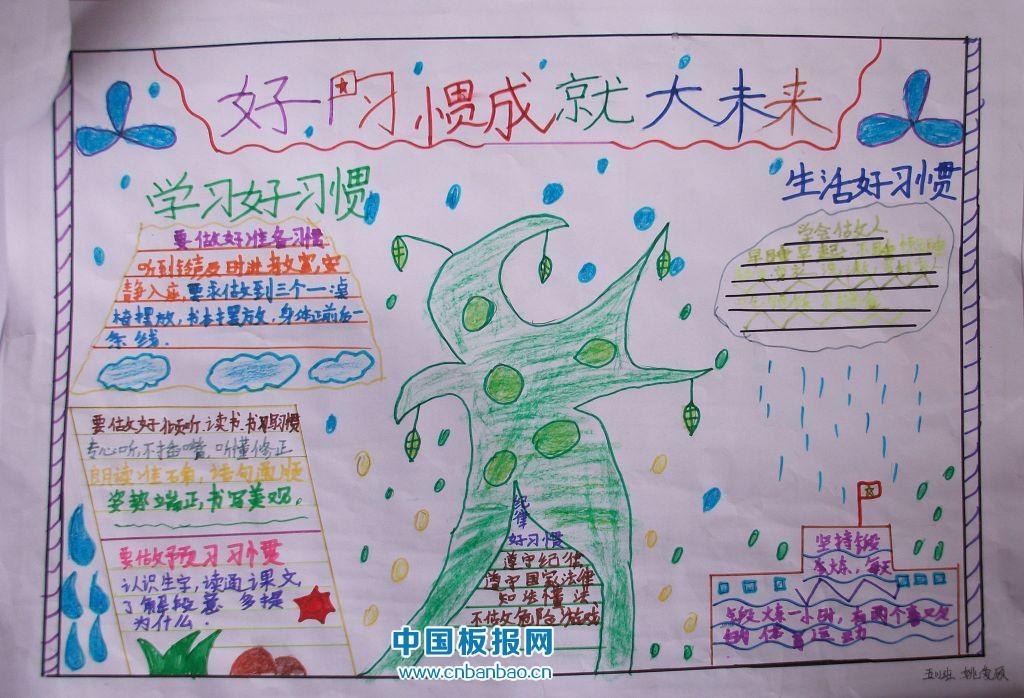 好习惯成就大未来
学习好习惯
要做好准备习惯
听到铃声及时进教室,安
静入座,要求做到三个一:桌
椅摆放,书本摆放,身体正前后一
条线.
要做好倾听.读书.书写习惯
专心听,不插嘴,听懂修正
朗读准确,语句通顺
姿势端正,书写美观,
要做预习习惯
认识生字,读通课文
了解段意 多提
为什么.
纪律
好习惯
遵守纪律
遵守国家法律
知法懂法
不做危险游戏
生活好习惯
学会做人
早睡早起
坚持锻
炼,每天
锻炼一小时,有两个喜又
的体育运动
中国板报网
www.cnbanbao.cn
五(1)班